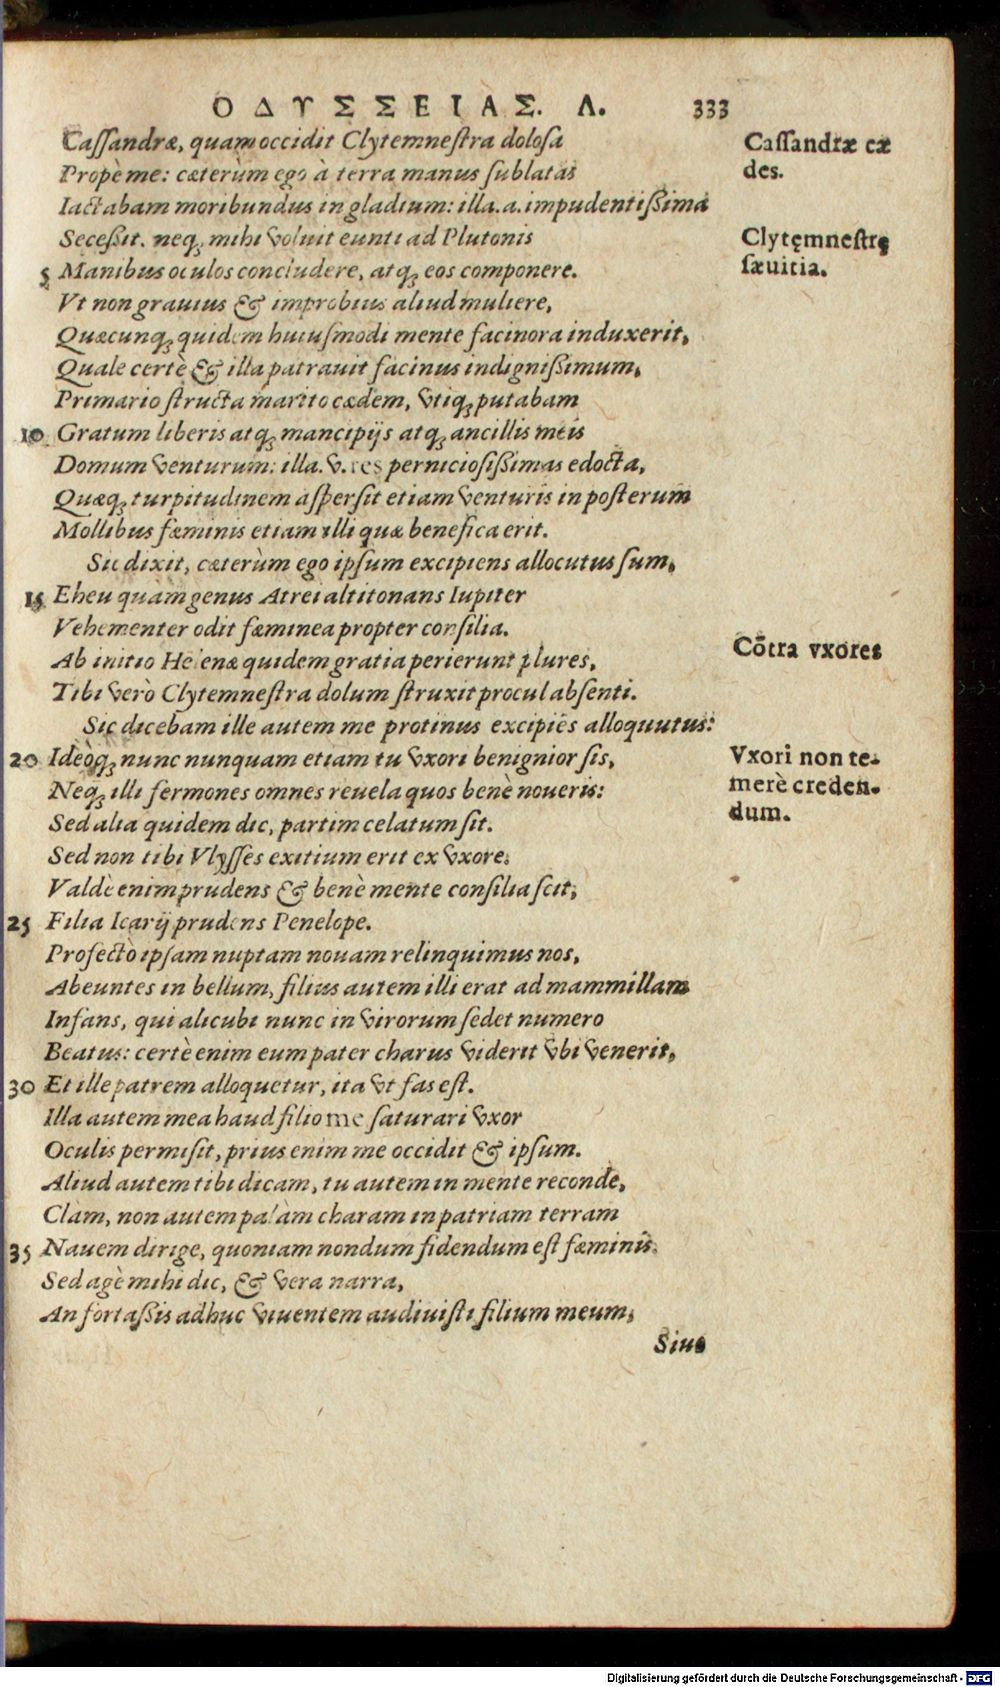 ΟΔΥΣΣΕΙΑΣ. Λ. 333
Cassandræ, quam occidit Clytemnestra dolosa
Cassandræ cæ
Propè me: cæterùm ego à terra manus sublatas
des.
Iactabam moribundus in gladium: illa.a.impudentißima
Seceßit. neq; mihi voluit eunti ad Plutonis
Clytęmnestrę
5 Manibus oculos concludere, atq; eos componere.
sæuitia.
Vt non grauius & improbius aliud muliere,
Quæcunq; quidem huiusmodi mente facinora induxerit,
Quale certè & illa patrauit facinus indignißimum,
Primario structa marito cædem, vtiq; putabam
10 Gratum liberis atq; mancipijs atq; ancillis meis
Domum venturum: illa.v.res perniciosißimas edocta,
Quæq; turpitudinem aspersit etiam venturis in posterum
Mollibus fæminis etiam illi quæ benefica erit.
Sic dixit, cæterùm ego ipsum excipiens allocutus sum,
15 Eheu quàm genus Atrei altitonans Iupiter
Vehementer odit fæminea propter consilia.
Cōtra vxores
Ab initio Helenæ quidem gratia perierunt plures,
Tibi verò Clytemnestra dolum struxit procul absenti.
Sic dicebam ille autem me protinus excipiēs alloquutus:
20 Ideòq; nunc nunquam etiam tu vxori benignior sis,
Vxori non te-
Neq; illi sermones omnes reuela quos benè noueris:
merè creden-
Sed alia quidem dic, partim celatum sit.
dum.
Sed non tibi Vlysses exitium erit ex vxore,
Valdè enim prudens & benè mente consilia scit,
25 Filia Icarij prudens Penelope.
Profectò ipsam nuptam nouam relinquimus nos,
Abeuntes in bellum, filius autem illi erat ad mammillam
Infans, qui alicubi nunc in virorum sedet numero
Beatus: certè enim eum pater charus viderit vbi venerit,
30 Et ille patrem alloquetur, ita vt fas est.
Illa autem mea haud filio me saturari vxor
Oculis permisit, prius enim me occidit & ipsum.
Aliud autem tibi dicam, tu autem in mente reconde,
Clàm, non autem palàm charam in patriam terram
35 Nauem dirige, quoniam nondum fidendum est fæminis.
Sed agè mihi dic, & vera narra,
An fortaßis adhuc viuentem audiuisti filium meum,
Siue
Digitalisierung gefördert durch die Deutsche Forschungsgemeinschaft - DFG